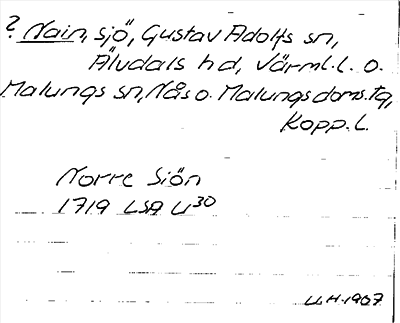 ? Nain, sjö, Gustav Adolfs sn,
Älvdals hd, Värml. l. o.
Malungs sn, Nås o. Malungs doms. tg,
Kopp. l.
Norre Siön
1719 LSA U30
LLH. 1967